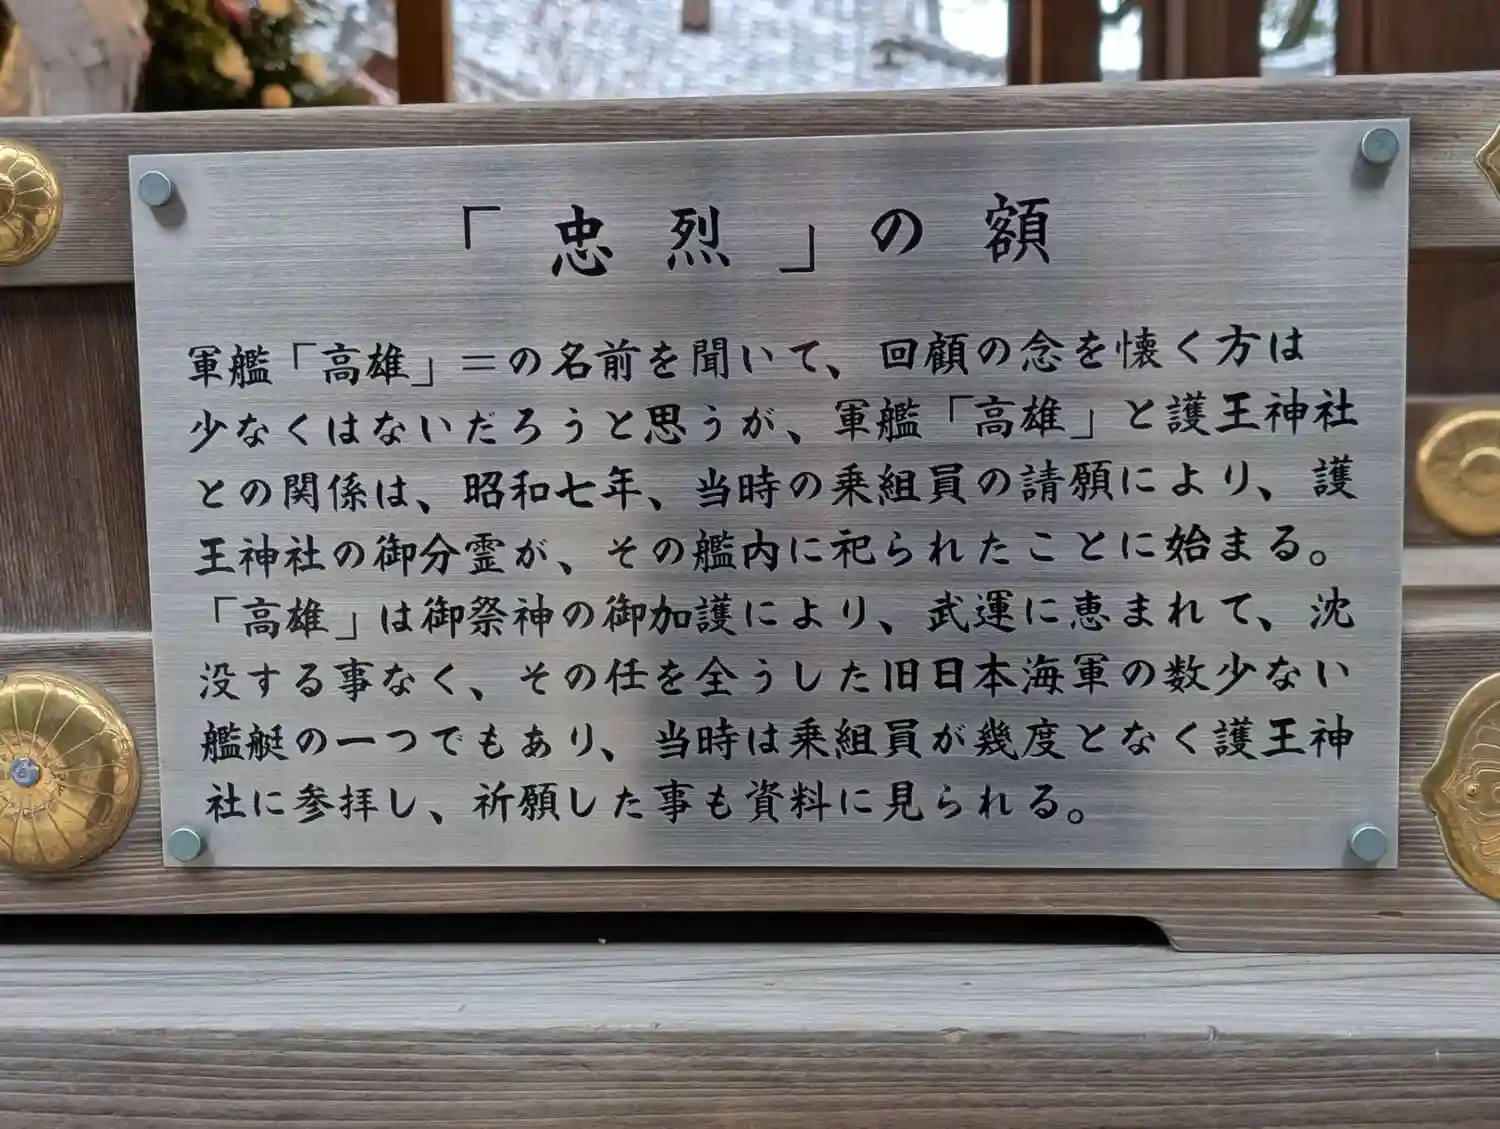 「忠烈」の額
軍艦「高雄」＝の名前を聞いて、回顧の念を懐く方は
少なくはないだろうと思うが、軍艦「高雄」と護王神社
との関係は、昭和七年、当時の乗組員の請願により、護
王神社の御分霊が、その艦内に祀られたことに始まる。
「高雄」は御祭神の御加護により、武運に恵まれて、沈
没する事なく、その任を全うした旧日本海軍の数少ない
艦艇の一つでもあり、当時は乗組員が幾度となく護王神
社に参拝し、祈願した事も資料に見られる。